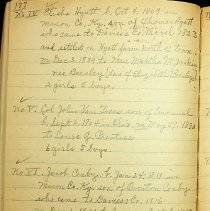 157
No. IV Elisha Hyatt b. Oct 6, 1809 in
Mason Co, Ky. son of Thomas Hyatt
who came to Daviess Co, March 1822
and settled on Hyatt farm north of town.
m Dec 3. 1839 to Mrs. Martha M.
nee Beazley
2 girls 5 boys.
No V. Col. John Van Trees son of Emanuel
b. Sept 2. 180 in Ohio m. May 27. 1830
to Louise G. Prentiss
6 girls 5 boys.
No VI. Jacob Cosby b. Jan 24, 1811 in
Mason Co. Ky. son of Overton Cosby
who came to Daviess Co. 1816